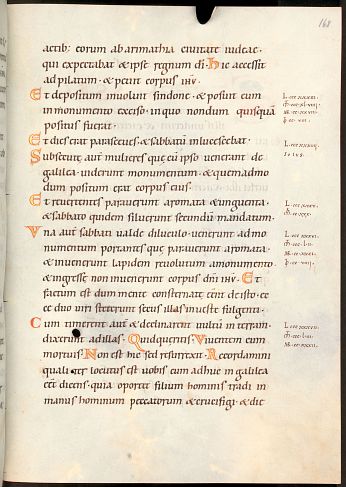 168
actib: eorum ab arimathia ciuitate iudeae·
qui expectabat & ipse regnum di· hic accessit
ad pilatum· & petiit corpus ihu·
Et depositum inuoluit sindone· & posuit eum
in monumento exciso· in quo nondum quisquam
positus fuerat·
Et dies erat parasceues· & sabbatum inlucescebat·
Subsecutae aut mulieres que cum ipso uenerant de
galilea· uiderunt monumentum· & quemadmo
dum positum erat corpus eius·
Et reuertentes parauerunt aromata & unguenta·
& sabbato quidem siluerunt secundum mandatum·
Una aut sabbati ualde diluculo· uenerunt ad mo
numentum portantes que parauerant aromata·
& inuenerunt lapidem reuolutum a monumento·
& ingressae non inuenerunt corpus dni ihu· Et
factum est dum mente consternate essent de isto· ec
ce duo uiri steterunt secus illas in ueste fulgenti·
Cum timerent aut & declinarent uultum in terram·
dixerunt ad illas· Quid queritis uiuentem cum
mortuis· Non est hic sed resurrexit· Recordamini
qualiter locutus est uobis cum adhuc in galilea
esset dicens· quia oportet filium hominis tradi in
manus hominum peccatorum & crucifigi· & die